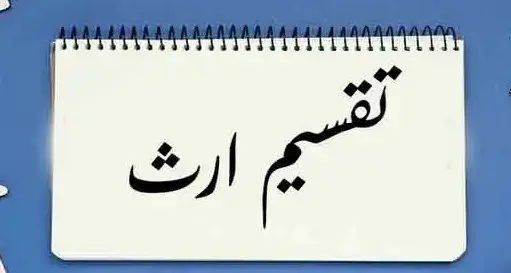 تقسیم ارث